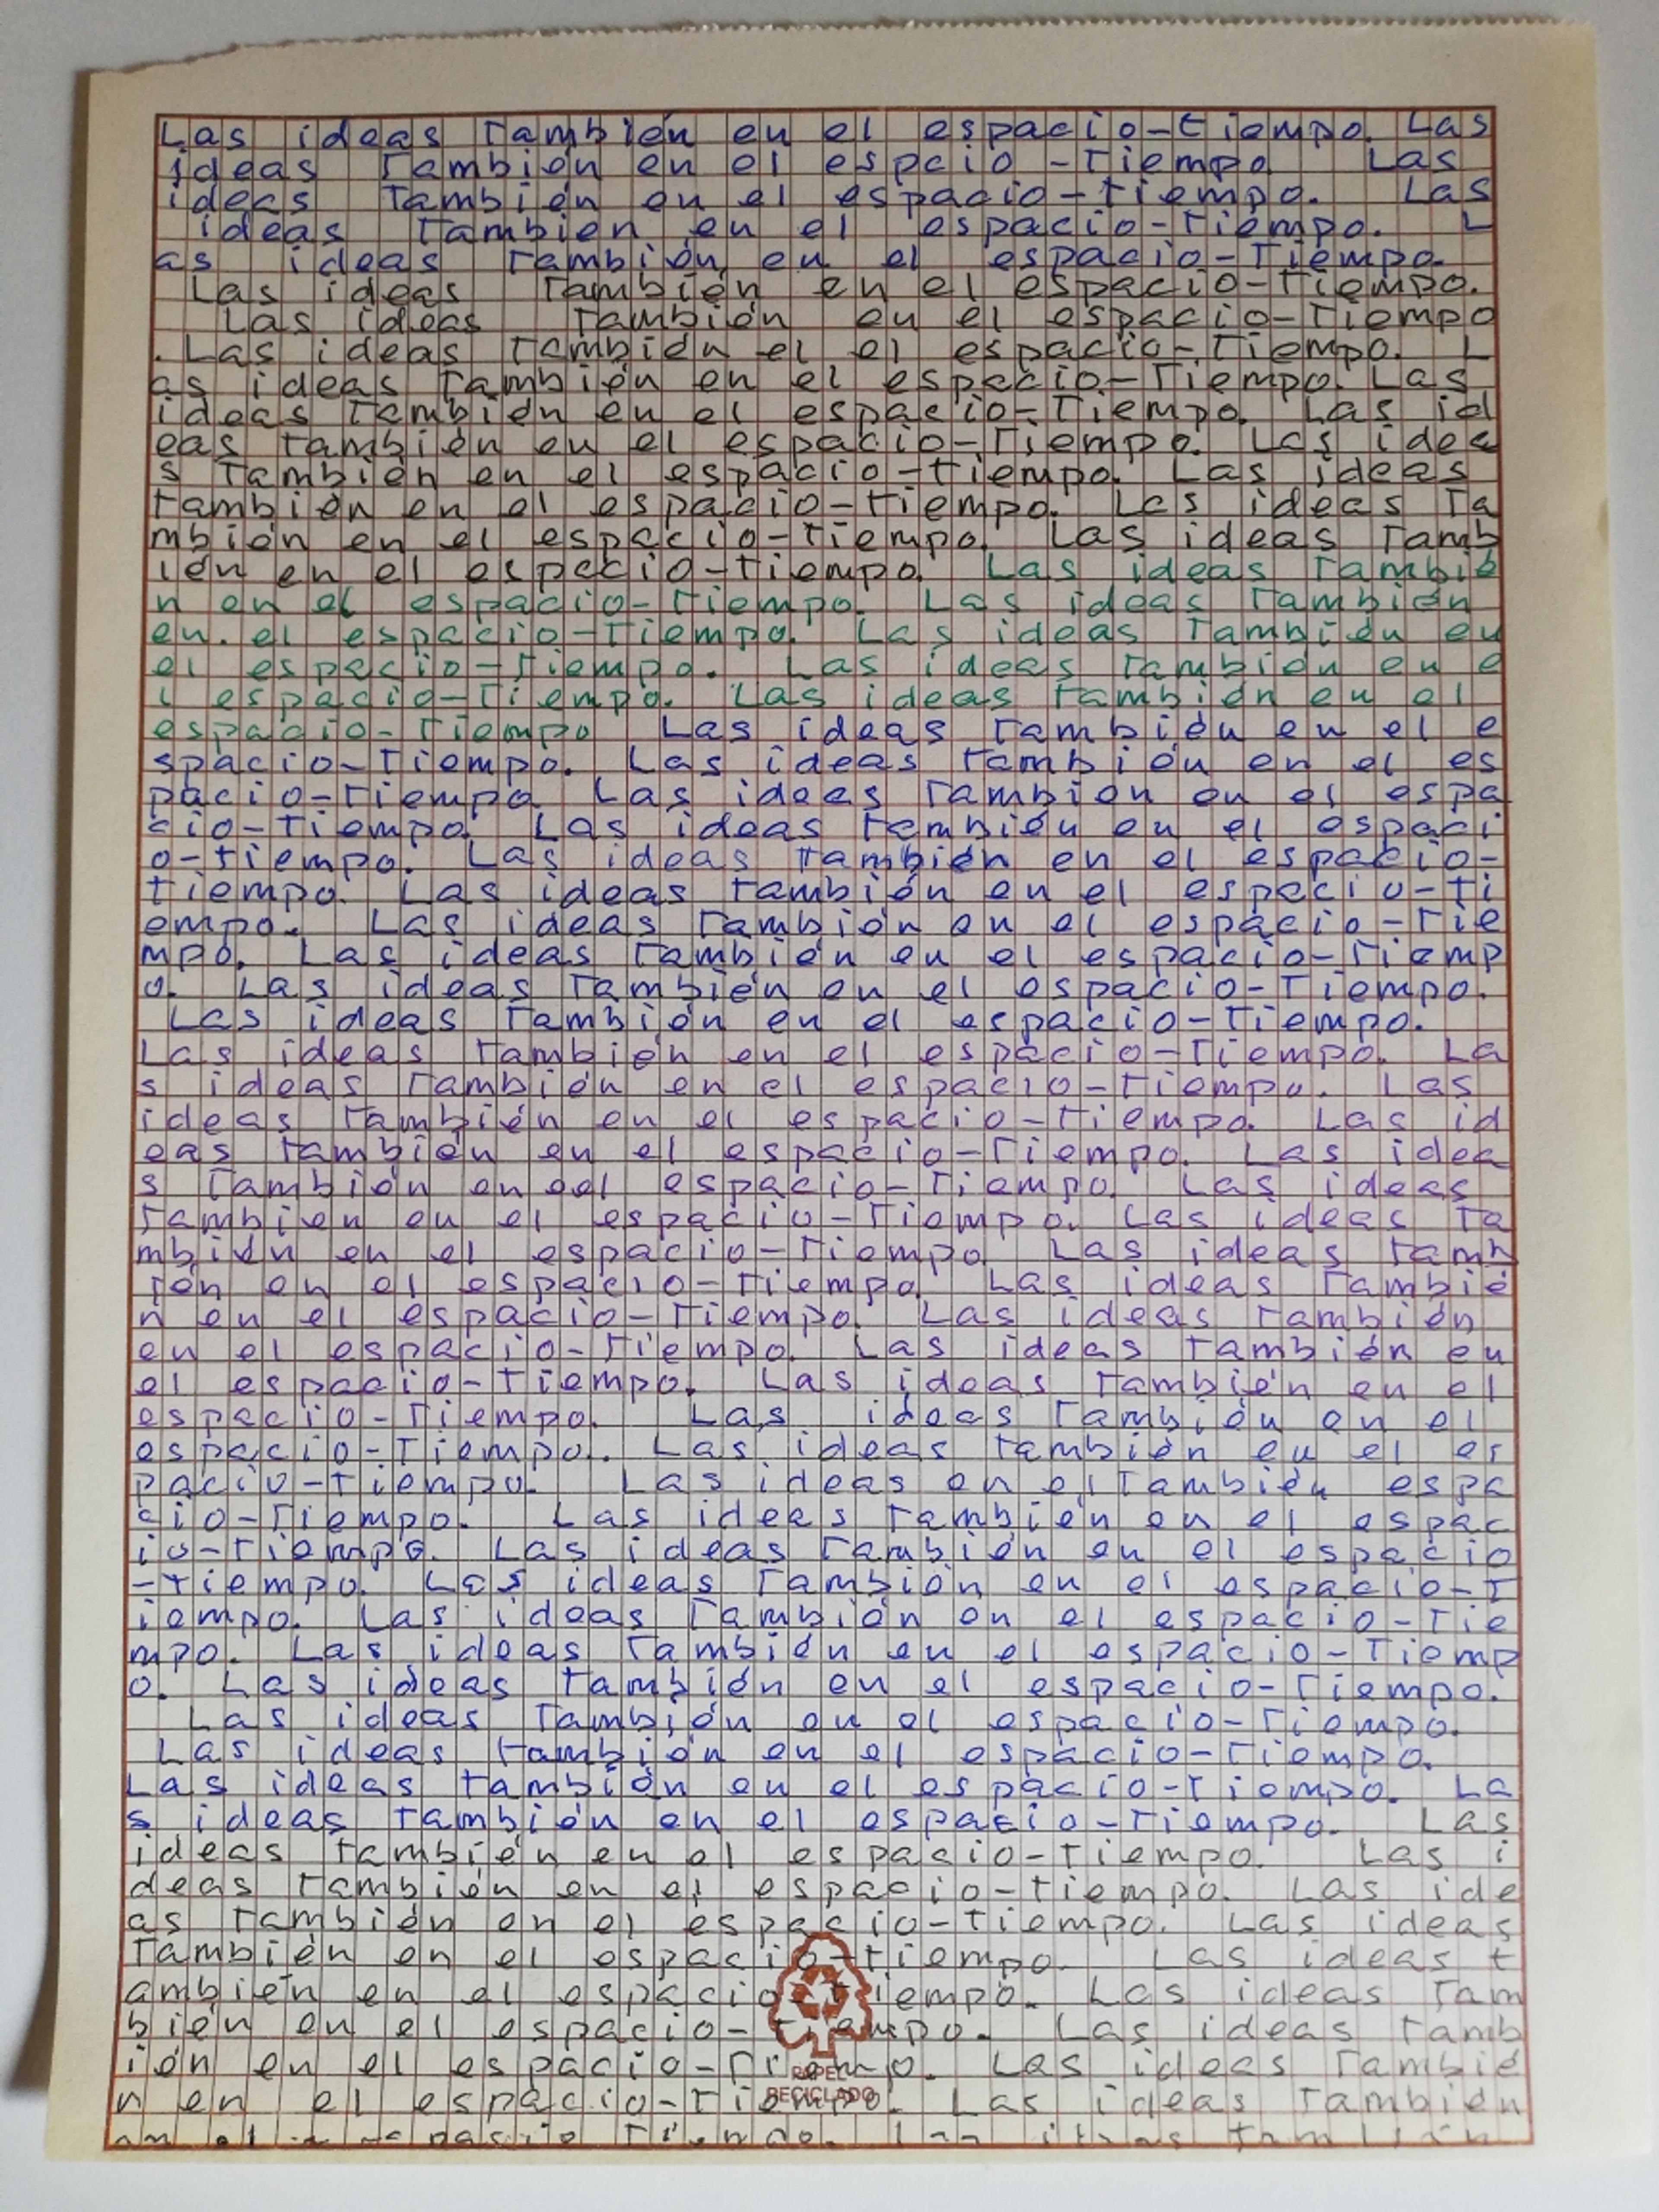 Las ideas también en el espacio-tiempo. Las
ideas también en el espcio-tiempo. Las
ideas también en el espacio-tiempo. Las
ideas también en el espacio-tiempo. L
as ideas también en el espacio-tiempo.
Las ideas también en el espacio-tiempo.
Las ideas también en el espacio-tiempo
. Las ideas también el el espacio-tiempo. L
as ideas también en el espacio-tiempo. Las
ideas también en el espacio-tiempo. Las id
eas también en el espacio-tiempo. Las idea
s también en el espacio-tiempo. Las ideas
también en el espacio-tiempo. Las ideas ta
mbién en el espacio-tiempo. Las ideas tamb
ién en el espacio-tiempo. Las ideas tambié
n en el espacio-tiempo. Las ideas también
en. el espacio-tiempo. Las ideas también en
el espacio-tiempo. Las ideas también en e
l espacio-tiempo. Las ideas también en el
espacio-tiempo Las ideas también en el e
spacio-tiempo. Las ideas también en el es
pacio-tiempo Las ideas también en el espa
cio-tiempo. Las ideas también en el espaci
o-tiempo. Las ideas también en el espacio-
tiempo. Las ideas también en el espacio-ti
empo. Las ideas también en el espacio-tie
mpo. Las ideas también en el espacio-tiemp
o. Las ideas también en el espacio-tiempo.
Las ideas también en el espacio-tiempo.
Las ideas también en el espacio-tiempo. La
s ideas también en el espacio-tiempo. Las
ideas también en el espacio-tiempo. Las id
eas también en el espacio-tiempo. Las idea
s también en eel espacio-tiempo. Las ideas
también en el espacio-tiempo. Las ideas ta
mbién en el espacio-tiempo. Las ideas tamb
ién en el espacio-tiempo. Las ideas tambié
n en el espacio-tiempo. Las ideas también
en el espacio-tiempo. Las ideas también en
el espacio-tiempo. Las ideas también en el
espacio-tiempo. Las ideas también en el
espacio-tiempo. Las ideas también en el es
pacio-tiempo. Las ideas en el también espa
cio-tiempo. Las ideas también en el espac
io-tiempo. Las ideas también en el espacio
-tiempo. Las ideas también en el espacio-t
iempo. Las ideas también en el espacio-tie
mpo. Las ideas también en el espacio-tiemp
o. Las ideas también en el espacio-tiempo.
Las ideas también en el espacio-tiempo.
Las ideas también en el espacio-tiempo.
Las ideas también en el espacio-tiempo. La
s ideas también en el espacio-tiempo. Las
ideas también en el espacio-tiempo. Las i
deas también en el espacio-tiempo. Las ide
as también en el espacio-tiempo. Las ideas
también en el espacio-tiempo. Las ideas t
ambién en el espacio-tiempo. Las ideas tam
bién en el espacio-tiempo. Las ideas tamb
ién en el espacio-tiempo. Las ideas tambié
PAPEL
n en el espacio-tiempo. Las ideas también
RECICLADO
en el espacio-tiempo. Las ideas también